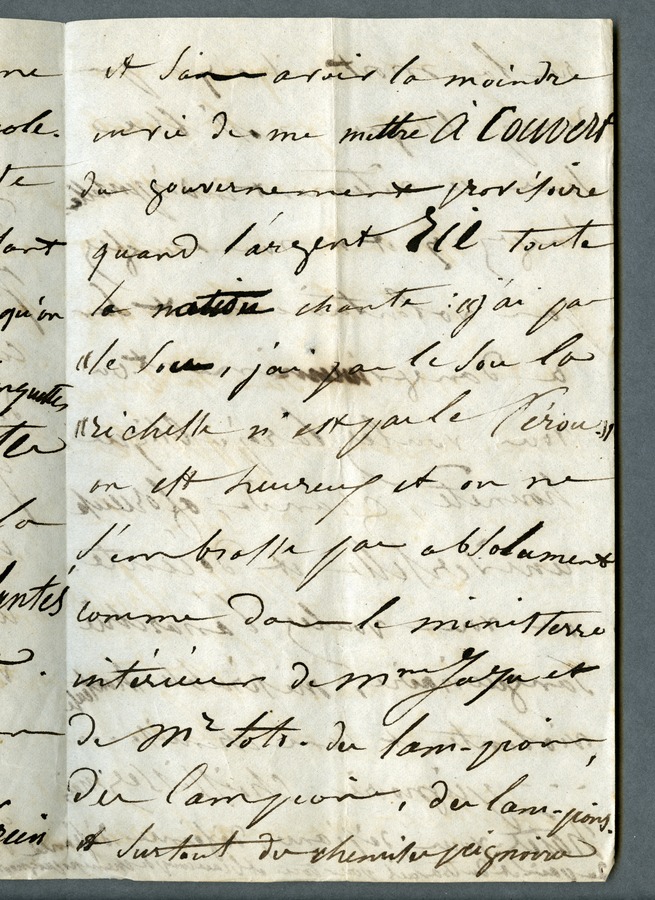 me
cole.
te
tant
qu'on
ter
la
et sans avoir la moindre
envie de me mettre à Couvert
du gouvernement provisoire
quand l'argent Rit toute
la nation chante : "j'ai pas
"le sou, j'ai pas le sou la
"richesse n'est pas le Pérou."
on est heureux et on ne
s'embrasse pas absolument
comme dans le ministerre
intérieur de Mme et
de Mr toto. des lam-pions,
Des lampions, des lam-pions.
et surtout des chemises peignoires